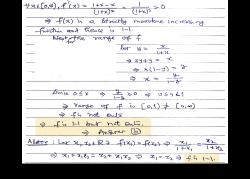 ∀x∈[0,∞), f'(x) = (1+x-x)/(1+x)² = 1/(1+x)² > 0
⇒ f(x) is a strictly monotone increasing
function and hence is 1-1.
Next, the range of f
Let y = x/(1+x)
⇒ xy+y = x
⇒ x(1-y) = y
⇒ x = y/(1-y)
Since 0≤x ⇒ y/(1-y) ≥ 0 ⇒ 0≤y<1
⇒ range of f is [0,1) ≠ [0,∞)
⇒ f is not onto
⇒ f is 1-1 but not onto.
⇒ Answer (b)
Let x₁, x₂ ∈ f(x₁) = f(x₂) ⇒ x₁/(1+x₁) = x₂/(1+x₂)
⇒ x₁+x₁x₂ = x₂+x₁x₂ ⇒ x₁=x₂ ⇒ f is 1-1.